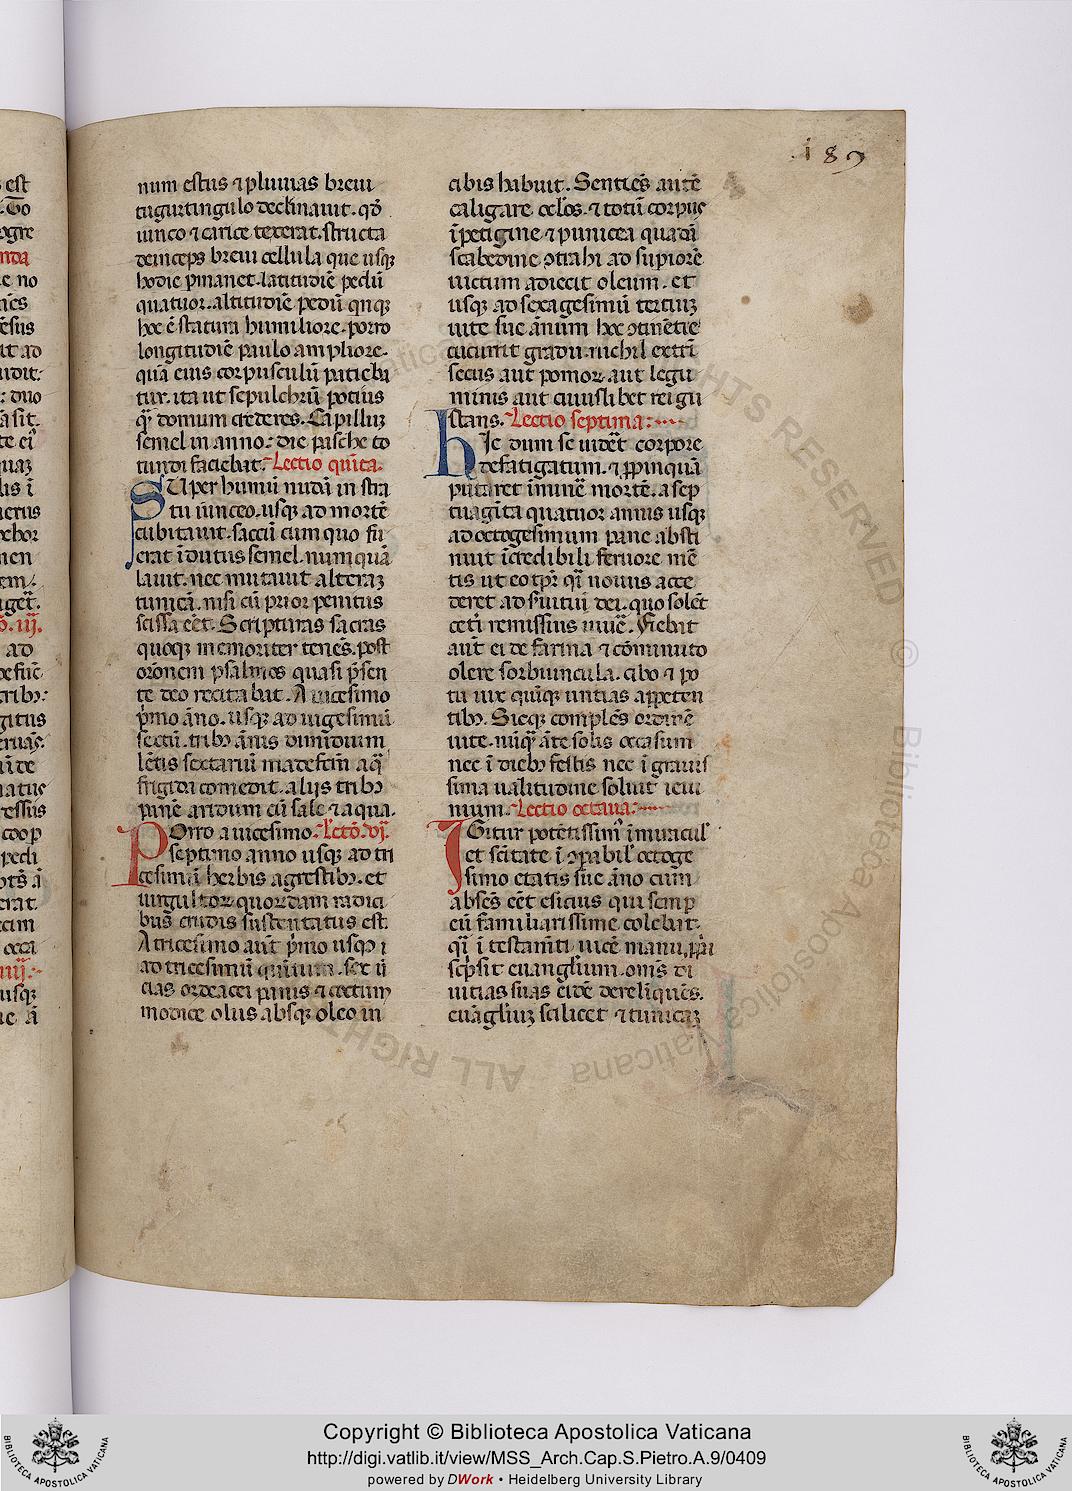 189
num estus ⁊ pluuias breui
tugurtingulo declinauit. qđ
iunco ⁊ carice texerat. structa
deinceps breui cellula que usqꝫ
hodie ꝑmanet. latitudiē pedū
quatuor. altitudiē pedū qnqꝫ
hoc ē statura humiliore. porro
longitudiē paulo ampliore.
quā eius corpusculū patieba
tur. ita ut sepulchrū potius
qͣꝫ domum crederes. Capilluꝫ
semel in anno: die pasche to
tundi faciebat. Lectio quīta.
SUper humū nudā in stra
tu iunceo. usqꝫ ad mortē
cubitauit. saccū cum quo fu
erat īdutus semel. numquā
lauit. nec mutauit alteraꝫ
tunicā. nisi cū prior penitus
scissa eēt. Scripturas sacras
quoqꝫ memoriter tenēs. post
orōnem psalmos quasi p̄sen
te deo recitabat. A uicesimo
p̄mo āno. usqꝫ ad uigesimū
sextū. tribꝫ ānis dimidium
lētis sextariū madefctm̄ aqͣ
frigida comedit. alijs tribꝫ
panē aridum cū sale ⁊ aqua.
POrro a uicesimo. Lectō. vj.
septimo anno usqꝫ ad tri
cesimū herbis agrestibꝫ. et
uirgultoꝝ quordam radici
bus crudis sustentatus est.
A tricesimo aūt p̄mo usqꝫ
ad tricesimū quintum. sex ū
cias ordeacei panis ⁊ coctum
modice olus absqꝫ oleo in
cibis habuit. Sentiēs autē
caligare oclōs. ⁊ totū corpus
īpetigine ⁊ punicea quadā
scabedine ↄtrahi ad supiorē
uictum adiecit oleum. et
usqꝫ ad sexagesimū tertiuꝫ
uite sue ānum hoc ↄtinētie
cucurrit gradu. nichil extrī
secus aut pomoꝝ aut legu
minis aut cuiuslibet rei gu
stans. Lectio septima:
hIc dum se uidēt corpore
defatigatum. ⁊ ꝓpinquā
putaret īminē mortē. a sep
tuagīta quatuor annis usqꝫ
ad octogesimum pane absti
nuit īcredibili feruore mē
tis ut eo tp̄r qͣi nouus acce
deret ad s̄uitiū dei. quo solēt
cet̄i remissius uiuē. Fiebat
aūt ei de farina ⁊ cōminuto
olere sorbiuncula. cibo ⁊ po
tu uix quīqꝫ untias appeten
tibꝫ. Sicqꝫ complēs ordinē
uite. nūqͣ āte solis occasum
nec ī diebꝫ festis nec ī grauis
sima ualitudine soluit ieiu
nium. Lectio octaua:
IGitur potētissim̄ ī miracul
et scītate ī ↄparabil̄ octoge
simo etatis sue āno cum
absēs eēt esicius qui semp
eū familiarissime colebat.
qͣi ī testam̄ti uicē manu ꝓpa
scp̄sit euangl̄ium. om̄s di
uitias suas eidē derelīquēs.
euāgliuꝫ scilicet ⁊ tunicaꝫ
Copyright © Biblioteca Apostolica Vaticana
http://digi.vatlib.it/view/MSS_Arch.Cap.S.Pietro.A.9/0409
powered by DWork • Heidelberg University Library